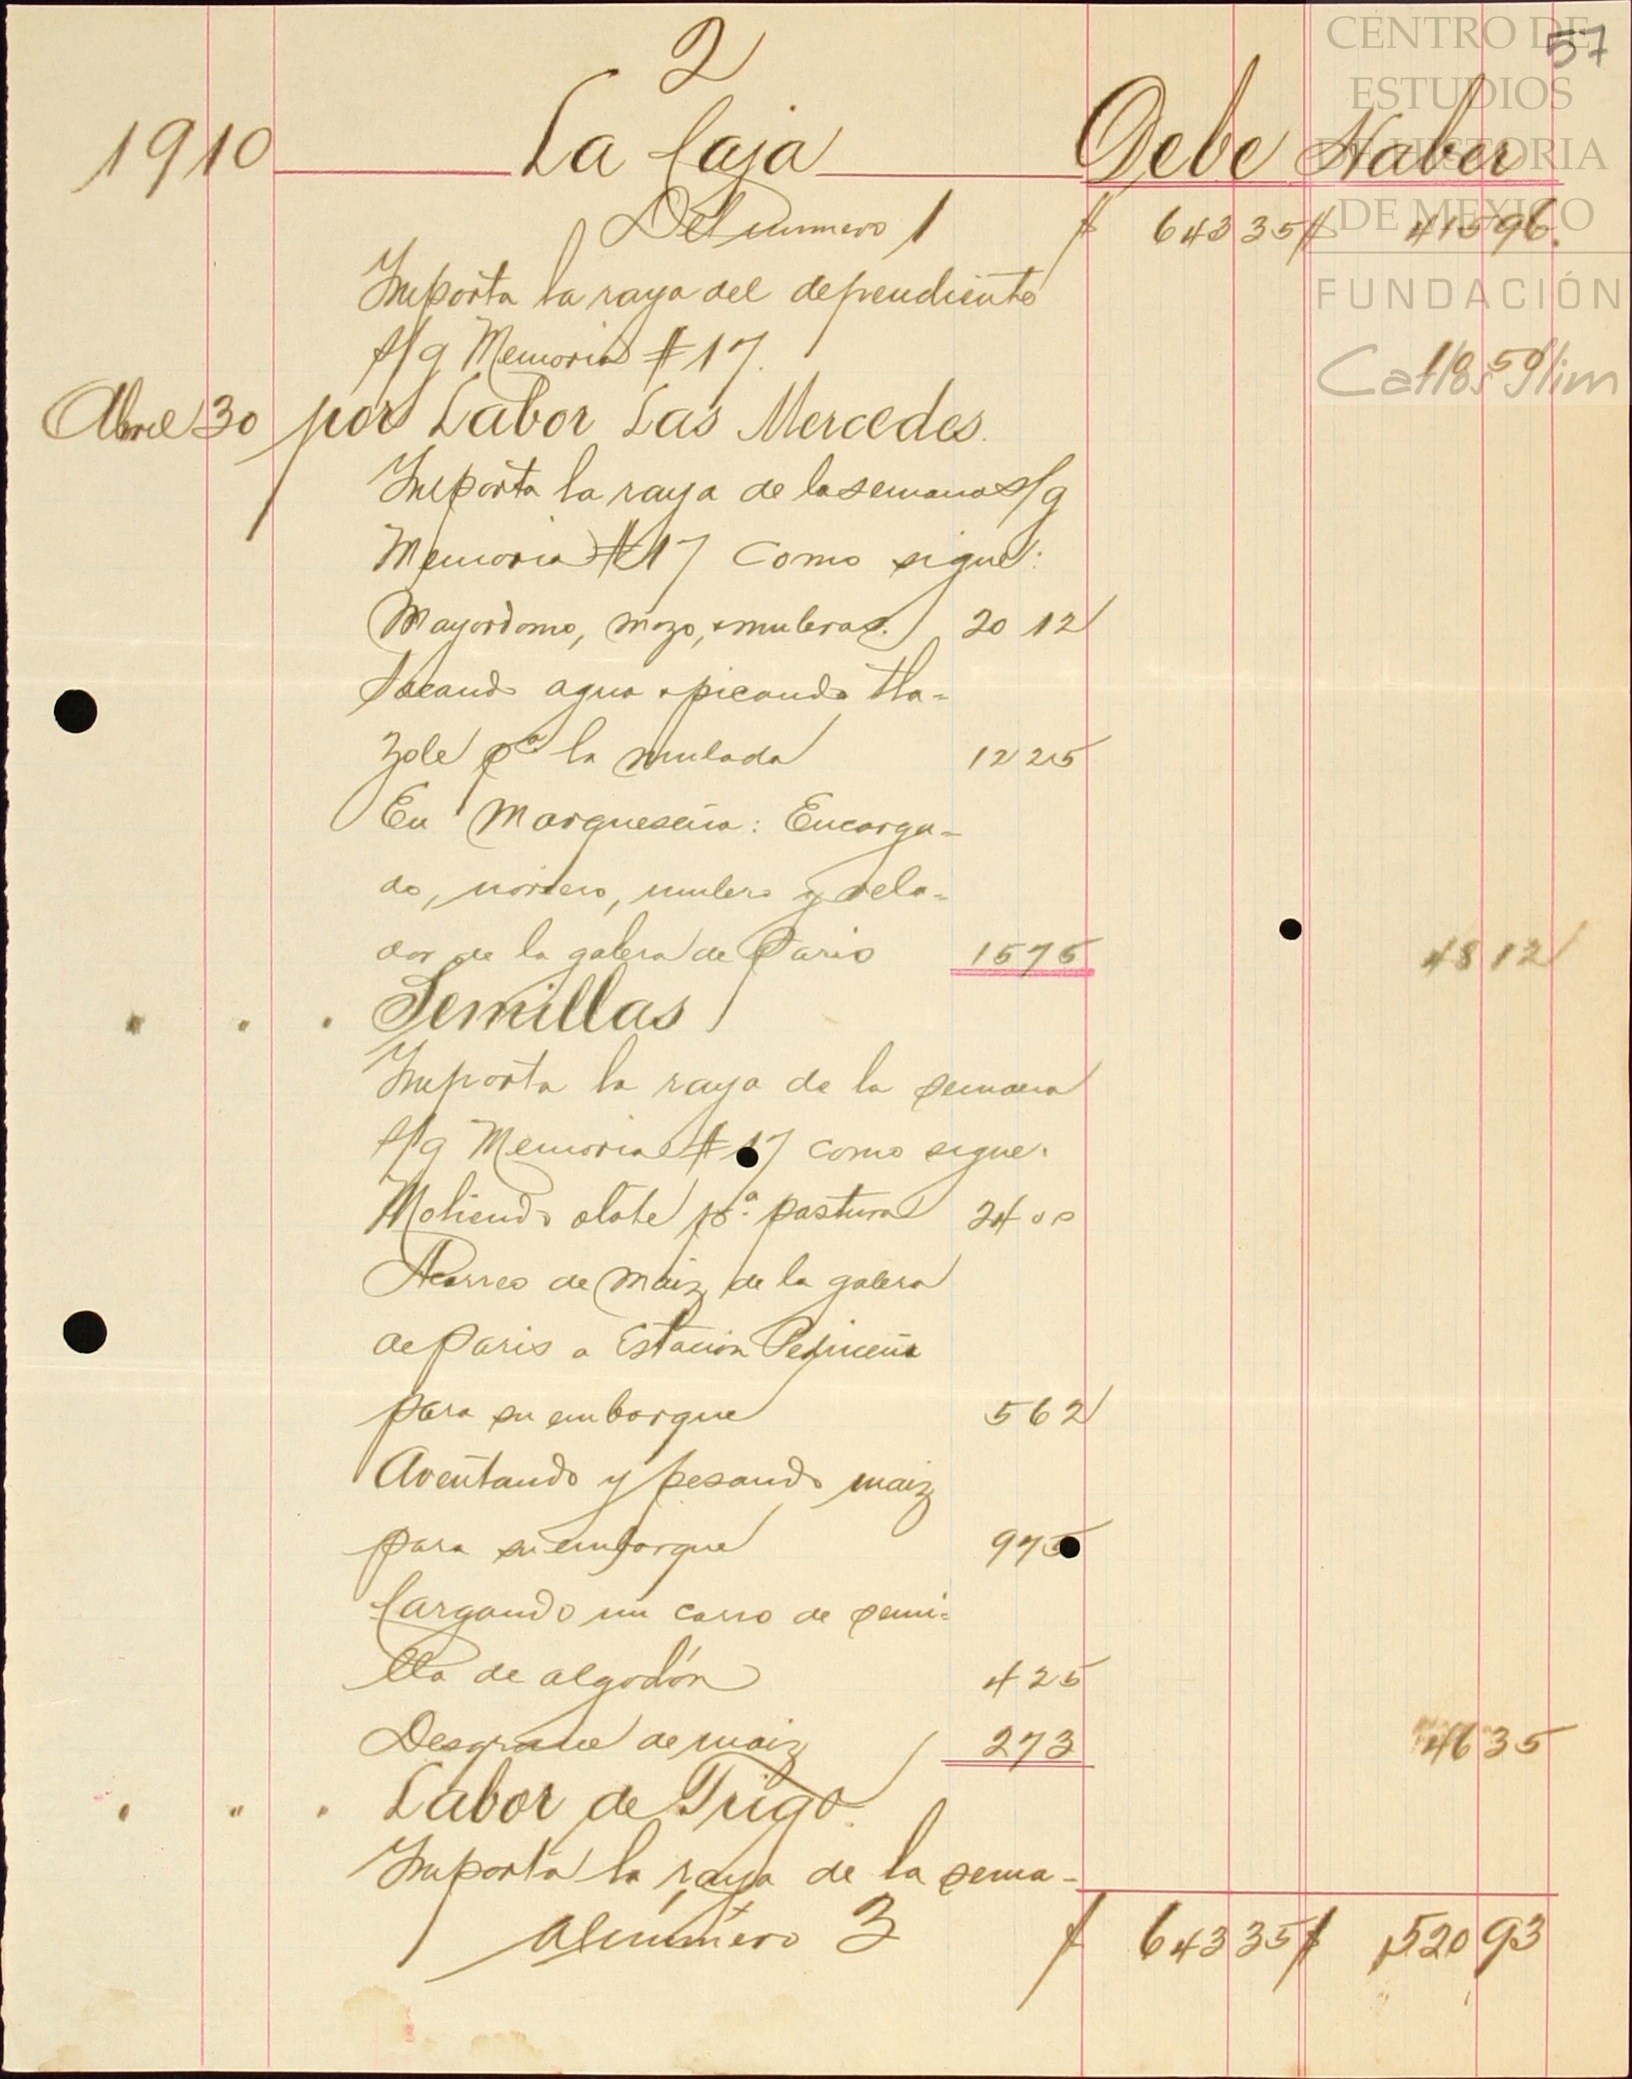 57
2
1910 La Caja Debe Haber
Del número 1 $ 643 35 $ 415 96.
Importa la raya del dependiente
s/g Memoria #17. 10 50
Abril 30 por Labor Las Mercedes.
Importa la raya de la semana s/g
Memoria #17 como sigue:
Mayordomo, mozo, y muleras. 20 12
Sacando agua y picando tla-
zole pª la mulada 12 25
En Marqueseña: Encarga-
do, noriero, mulero y vela-
dor de la galera de Paris 15 75 48 12
" " " Semillas
Importa la raya de la semana
s/g Memoria #17 como sigue.
Moliendo olote pª pastura 24 00
Acarreo de maiz de la galera
de Paris a Estación Pedriceña
para su embarque 5 62
Aventando y pesando maiz
para su embarque 9 75
Cargando un carro de semi-
lla de algodón 4 25
Desgrane de maiz 2 73 46 35
" " " Labor de Trigo.
Importa la raya de la sema-
Al número 3 $ 643 35 $ 520 93
CENTRO DE
ESTUDIOS
DE HISTORIA
DE MÉXICO
FUNDACIÓN
Carlos Slim